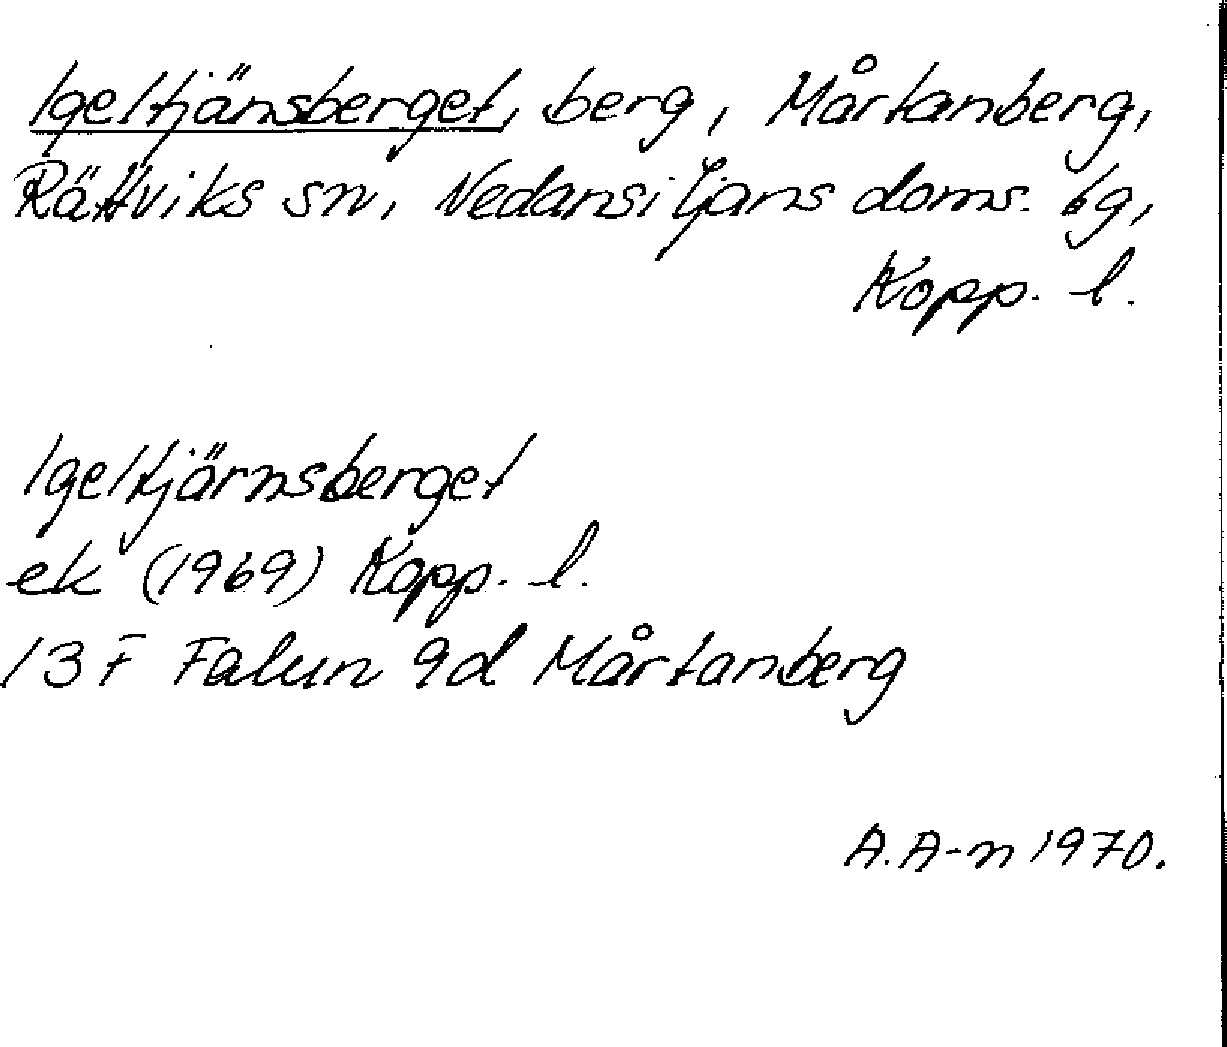 Igeltjänsberget, berg, Mårtanberg,
Rättviks sn, Nedansiljans doms. bg,
Kopp. l.
Igeltjärnsberget
ek (1969) Kopp. l.
13 F Falun 9d Mårtanberg
A.A-n 1970.